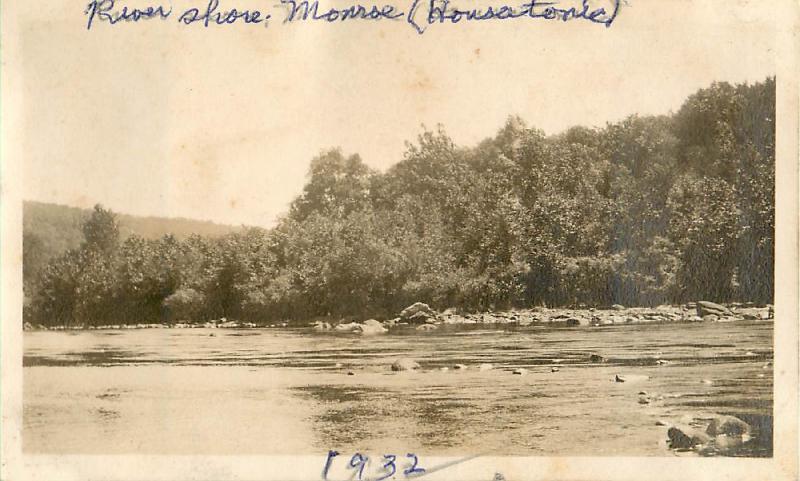 River shore. Monroe (Housatonic)
1932